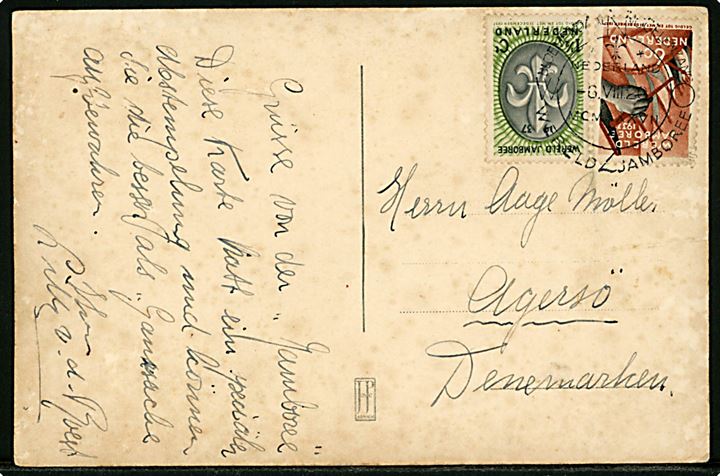 Grüsse von der „Jamboree"
Diese Karte hat ein
Abstempelung und können
Sie die besser als „Ganzsache
aufbewahren.
v. d.
Herrn Aage Möller
Agersö
Denemarken.
NEDERLAND
WERELD JAMBOREE
37
NEDERLAND
WERELD
JAMBOREE
1937
NEDERLAND
-6.VIII
WERELD JAMBOREE